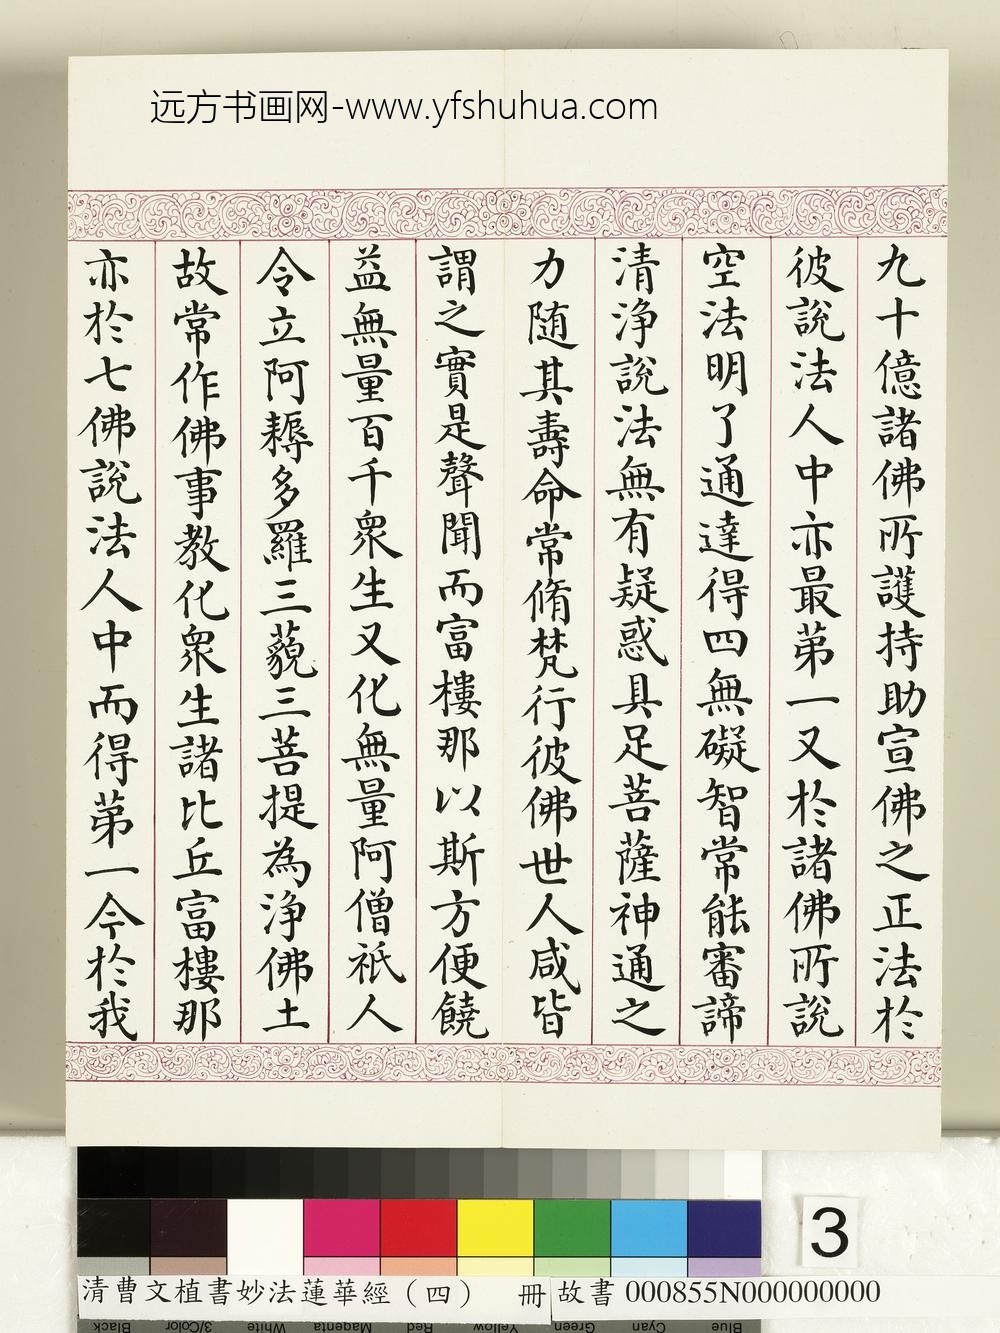 远方书画网-www.yfshuhua.com
九十億諸佛所護持助宣佛之正法於
彼說法人中亦最第一又於諸佛所說
空法明了通達得四無礙智常能審諦
清淨說法無有疑惑具足菩薩神通之
力隨其壽命常脩梵行彼佛世人咸皆
謂之實是聲聞而富樓那以斯方便饒
益無量百千眾生又化無量阿僧祇人
令立阿耨多羅三藐三菩提為淨佛土
故常作佛事教化眾生諸比丘富樓那
亦於七佛說法人中而得第一今於我
3
清曹文植書妙法蓮華經（四） 冊 故書 000855N000000000
Black 3/Color White Magenta Red Yellow Green Cyan Blue